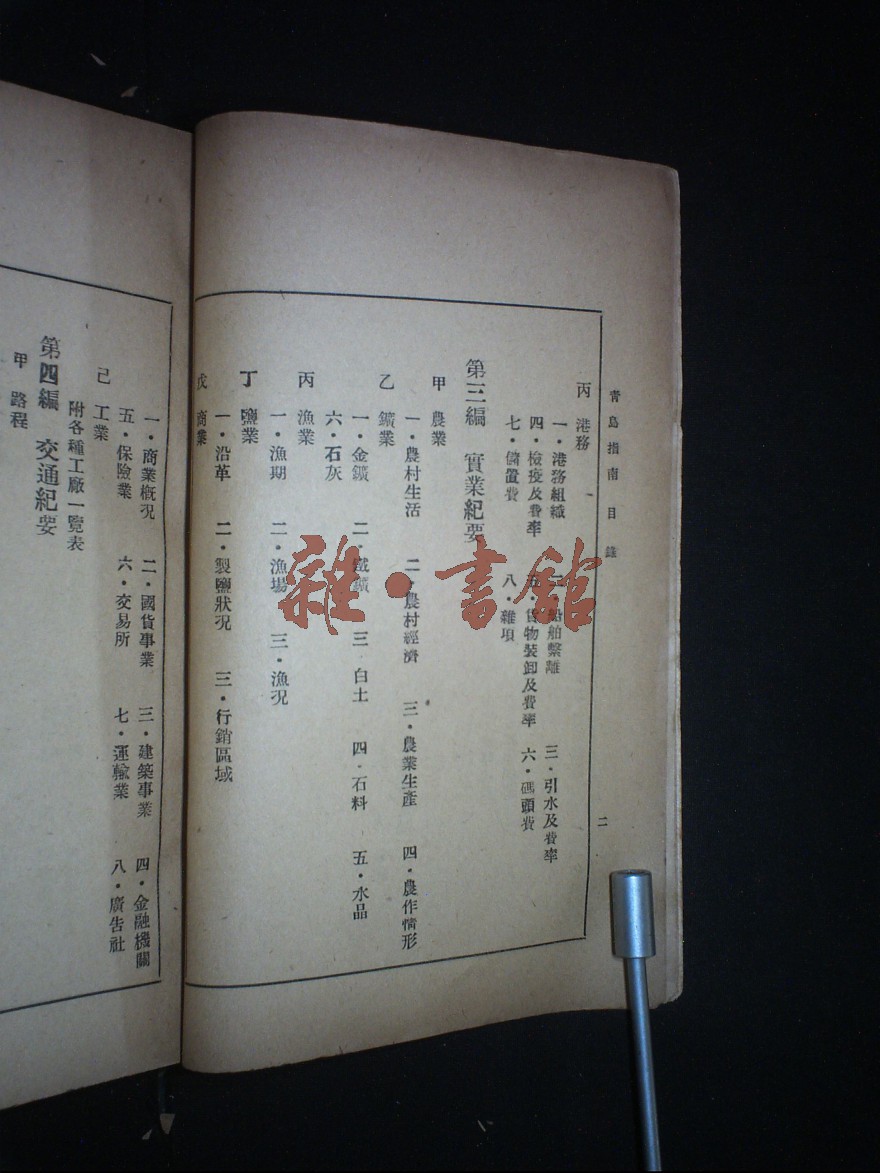 青島指南目錄
二
丙 港務
一·港務組織 二·船舶繫離 三·引水及費率
四·檢疫及費率 五·貨物裝卸及費率 六·碼頭費
七·儲置費 八·雜項
第三編 實業紀要
甲 農業
一·農村生活 二·農村經濟 三·農業生產 四·農作情形
乙 鑛業
一·金鑛 二·鐵鑛 三·白土 四·石料 五·水晶
六·石灰
丙 漁業
一·漁期 二·漁場 三·漁況
丁 鹽業
一·沿革 二·製鹽狀況 三·行銷區域
戊 商業
一·商業概況 二·國貨事業 三·建築事業 四·金融機關
五·保險業 六·交易所 七·運輸業 八·廣告社
己 工業
附各種工廠一覽表
第四編 交通紀要
甲 路程
雜·書館